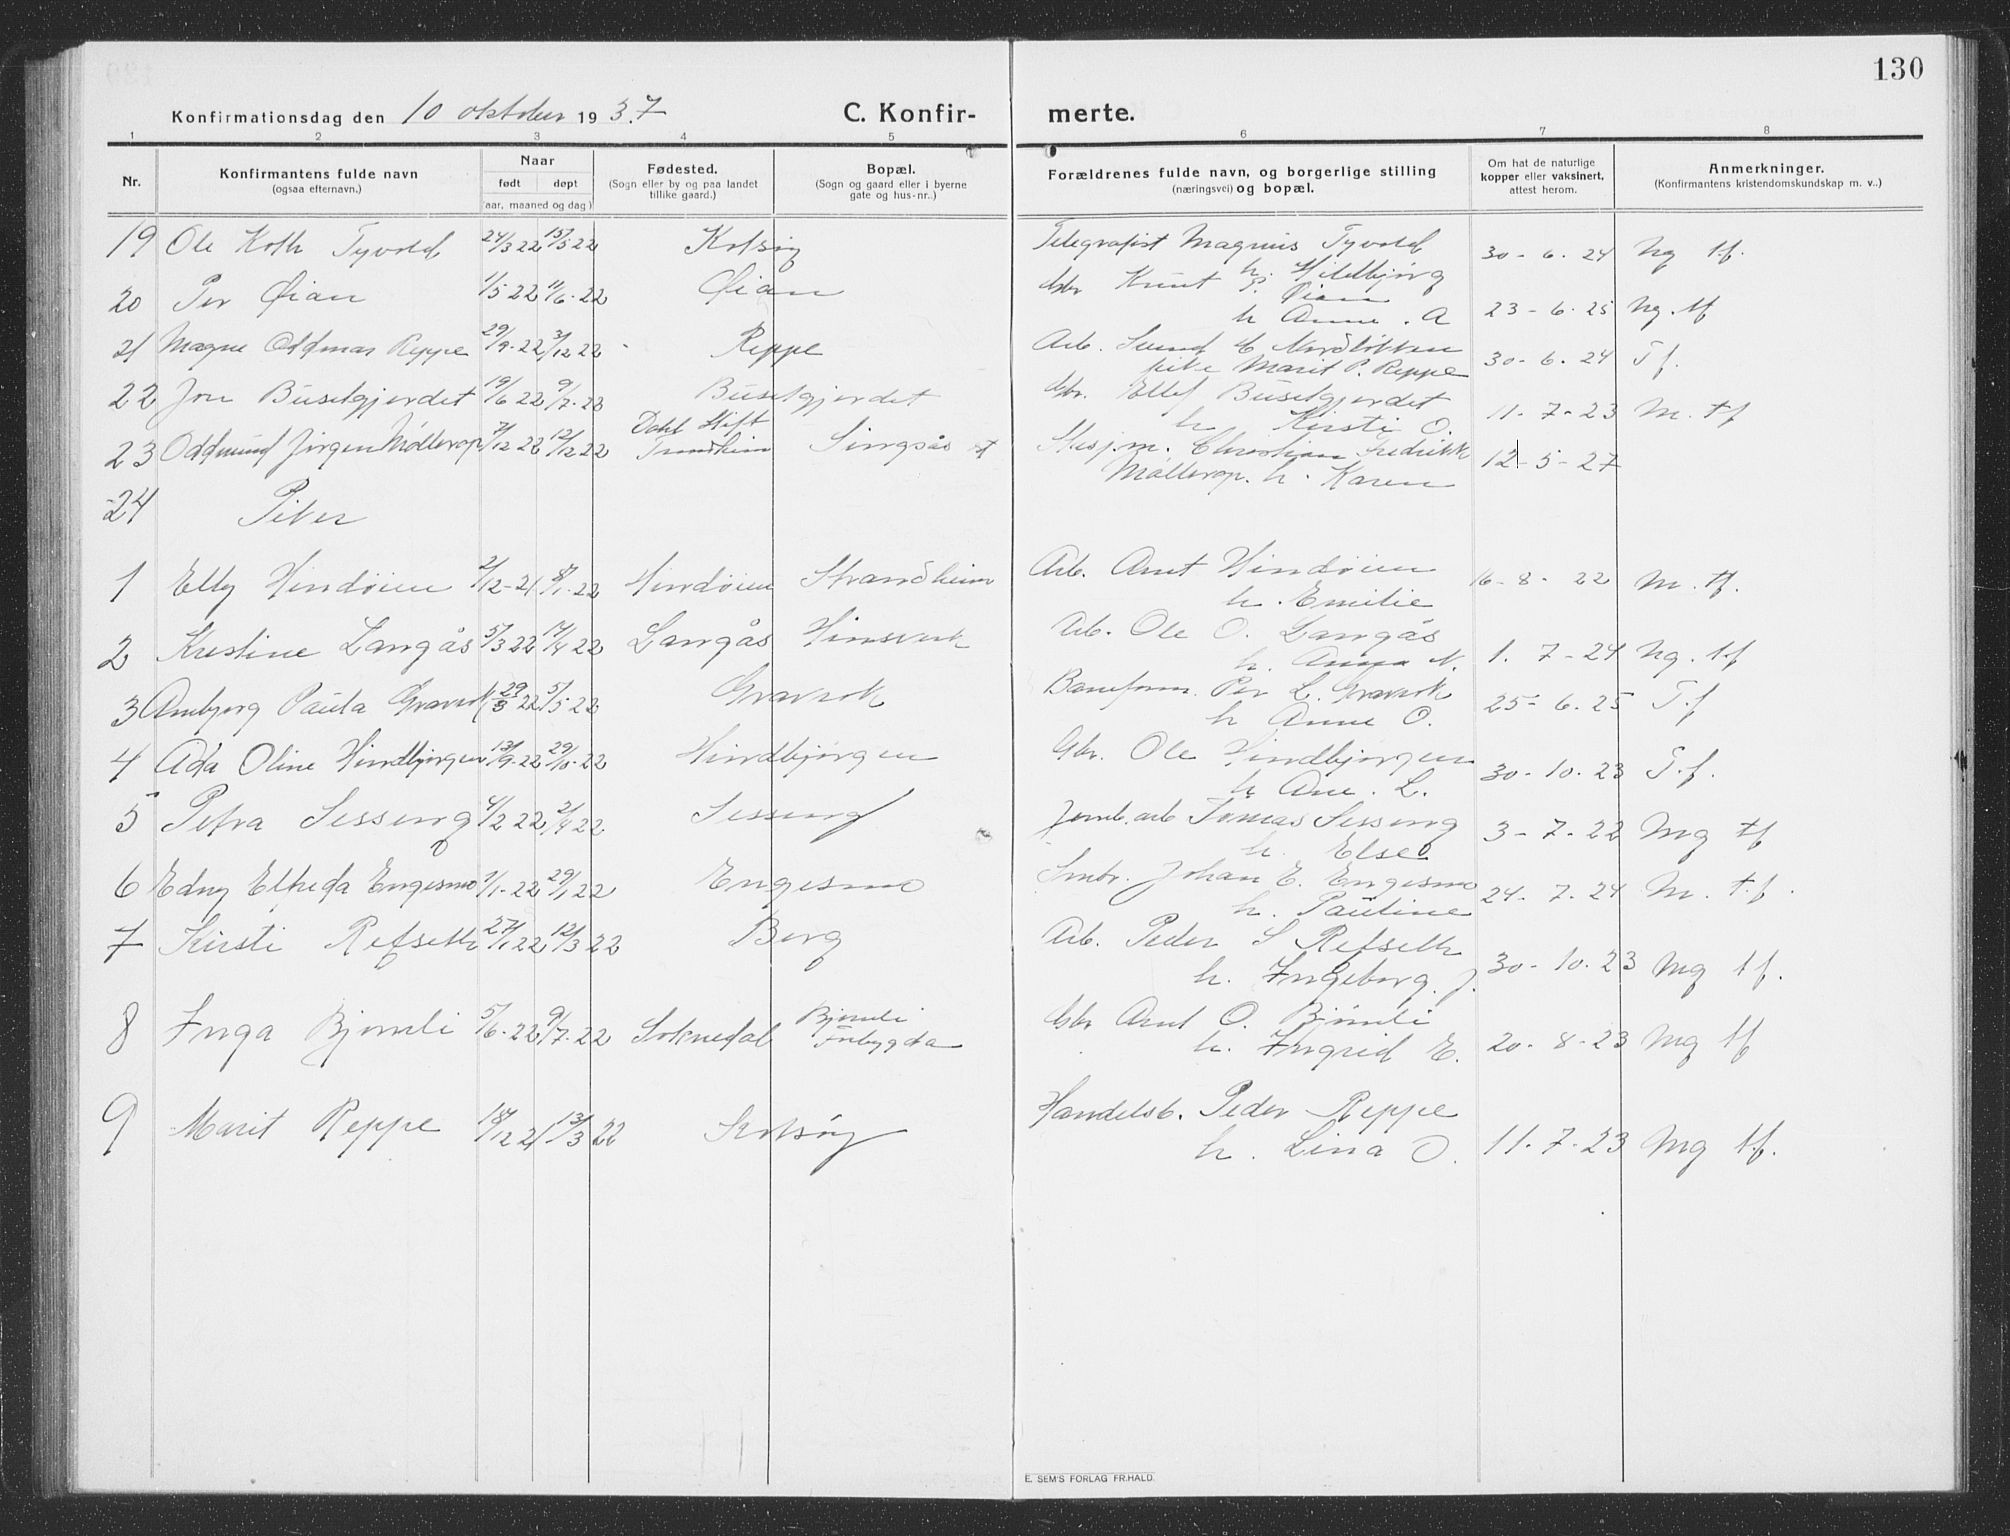 130
Konfirmationsdag den 10 oktober 1937
C. Konfirmerte.
1 2 3 4 5 6 7 8
Nr.
Konfirmantens fulde navn
(ogsaa efternavn.)
Naar
født døpt
(aar, maaned og dag)
Fødested.
(Sogn eller by og paa landet
tillike gaard.)
Bopæl.
(Sogn og gaard eller i byerne
gate og hus-nr..)
Forældrenes fulde navn, og borgerlige stilling
(næringsvei) og bopæl.
Om hat de naturlige
kopper eller vaksinert,
attest herom.
Anmerkninger.
(Konfirmantens kristendomskundskap m. v..)
19 Ole Koth Tyvold 24/3 22 15/5 22 Kotsøy Telegrafist Magnus Tyvold
h. Hildbjørg 30-6.24 Mg tf.
20 Per Øian 1/5 22 11/6.22 Øian Gbr Knut P. Øian
h Anne . A 23-6.25 Ng. tf
21 Magne Oddmar Reppe 29/9.22 3/12 22 Reppe Arb. Svend E Nordløkken
pike Marit P. Reppe 30-6.24 T f.
22 Jon Busetgjerdet 19/6 22 9/7.22 Busetgjerdet Gbr. Ellef Busetgjerdet
h Kirsti O. 11-7-23 M. tf
23 Oddmund Jørgen Møllerop 7/12 22 12/12 22 Dahl Stift
Trondheim Singsås st Stasj.m. Christian Fredrikk
Møllerop. h. Karen 12-5-27
24 Piker
1 Elly Hindøien 2/12-21 8/1.22 Hindøien Strandheim Arb. Arnt Hindøien
h. Emilie 16-8-22 M. tf.
2 Kristine Langås 5/3 22 17/4 22 Langås Hinsverk Arb. Ole O. Langås
h. Anna N. 1.7-24 Ng. tf
3 Arnbjørg Paula Gravrok 29/3 22 5/5.22 Gravrok Baneform. Per L. Gravrok
h Anne O. 25-6.25 T.f
4 Ada Oline Hindbjørgen 13/9.22 29/10.22 Hindbjørgen Gbr. Ole Hindbjørgen
h Ane. L. 30-10.23 T.f.
5 Petra Sesseng 4/2 22 2/4 22 Sesseng Jernb.arb Tomas Sesseng
h. Else 3-7-22 Mg tf
6 Edny Elfrida Engesmo 1/1-22 29/1 22 Engesmo Smbr. Johan E. Engesmo
h. Pauline 24.7.24 M. t.f.
7 Kirsti Refseth 27/1 22 12/3 22 Berg Arb. Peder S Refseth
h. Ingeborg. J. 30-10.23 Mg tf.
8 Inga Bjømli 5/6.22 9/7.22 Soknedal Bjømli
Forbygda Gbr Arnt O. Bjømli
h. Ingrid E. 20-8-23 Mg tf
9 Marit Reppe 18/12 21 13/3 22 Kotsøy Handelsb. Peder Reppe
h. Lina O. 11.7.23 Mg t.f.
E. SEM'S FORLAG FR.HALD.